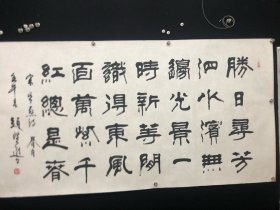 勝日尋芳
泗水濱無
邊光景一
時新等閒
識得東風
面萬紫千
紅總是春
宋朱熹詩春日